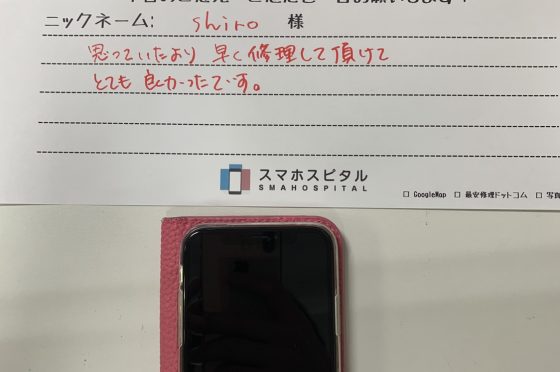 ニックネーム: shiro 様
思っていたより 早く修理して頂けて
とても 良かったです。
スマホスピタル
SMAHOSPITAL
□ GoogleMap □ 最安修理ドットコム □ 写真